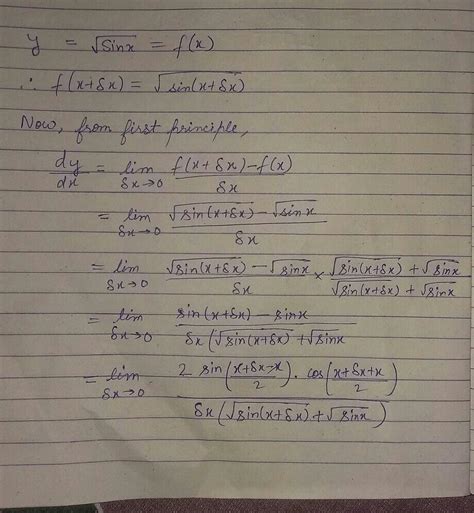 y = √Sinx = f(x)
∴ f(x+δx) = √sin(x+δx)
Now, from first principle,
dy/dx = lim δx→0 f(x+δx)-f(x) / δx
= lim δx→0 √sin(x+δx) - √sinx / δx
= lim δx→0 √sin(x+δx) - √sinx / δx × √sin(x+δx) + √sinx / √sin(x+δx) + √sinx
= lim δx→0 sin(x+δx) - sinx / δx(√sin(x+δx) + √sinx
= lim δx→0 2 sin(x+δx-x / 2) . cos(x+δx+x / 2) / δx(√sin(x+δx) + √sinx)